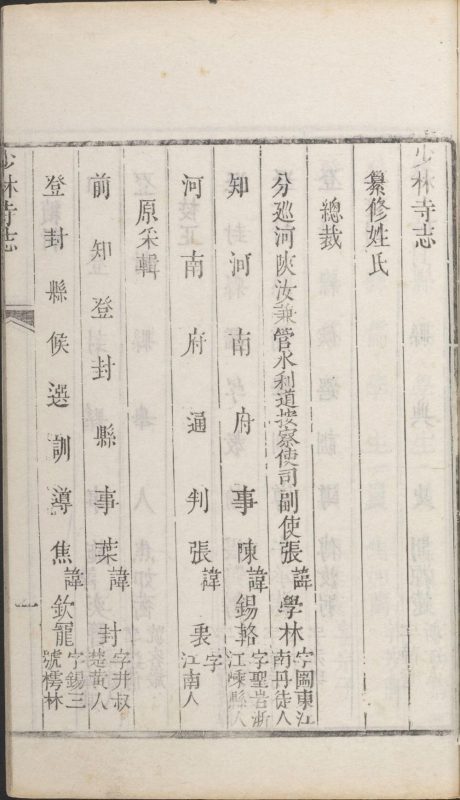 少林寺志
纂修姓氏
總裁
分巡河陝汝兼管水利道按察使司副使張諱學林字圖東江南丹徒人
知河南府事陳諱錫輅字聖岩浙江嵊縣人
河南府通判張諱裴字江南人
原采輯
前知登封縣事葉諱封字井叔楚黃人
登封縣候選訓導焦諱欽寵字錫三號樗林
少林寺志
一